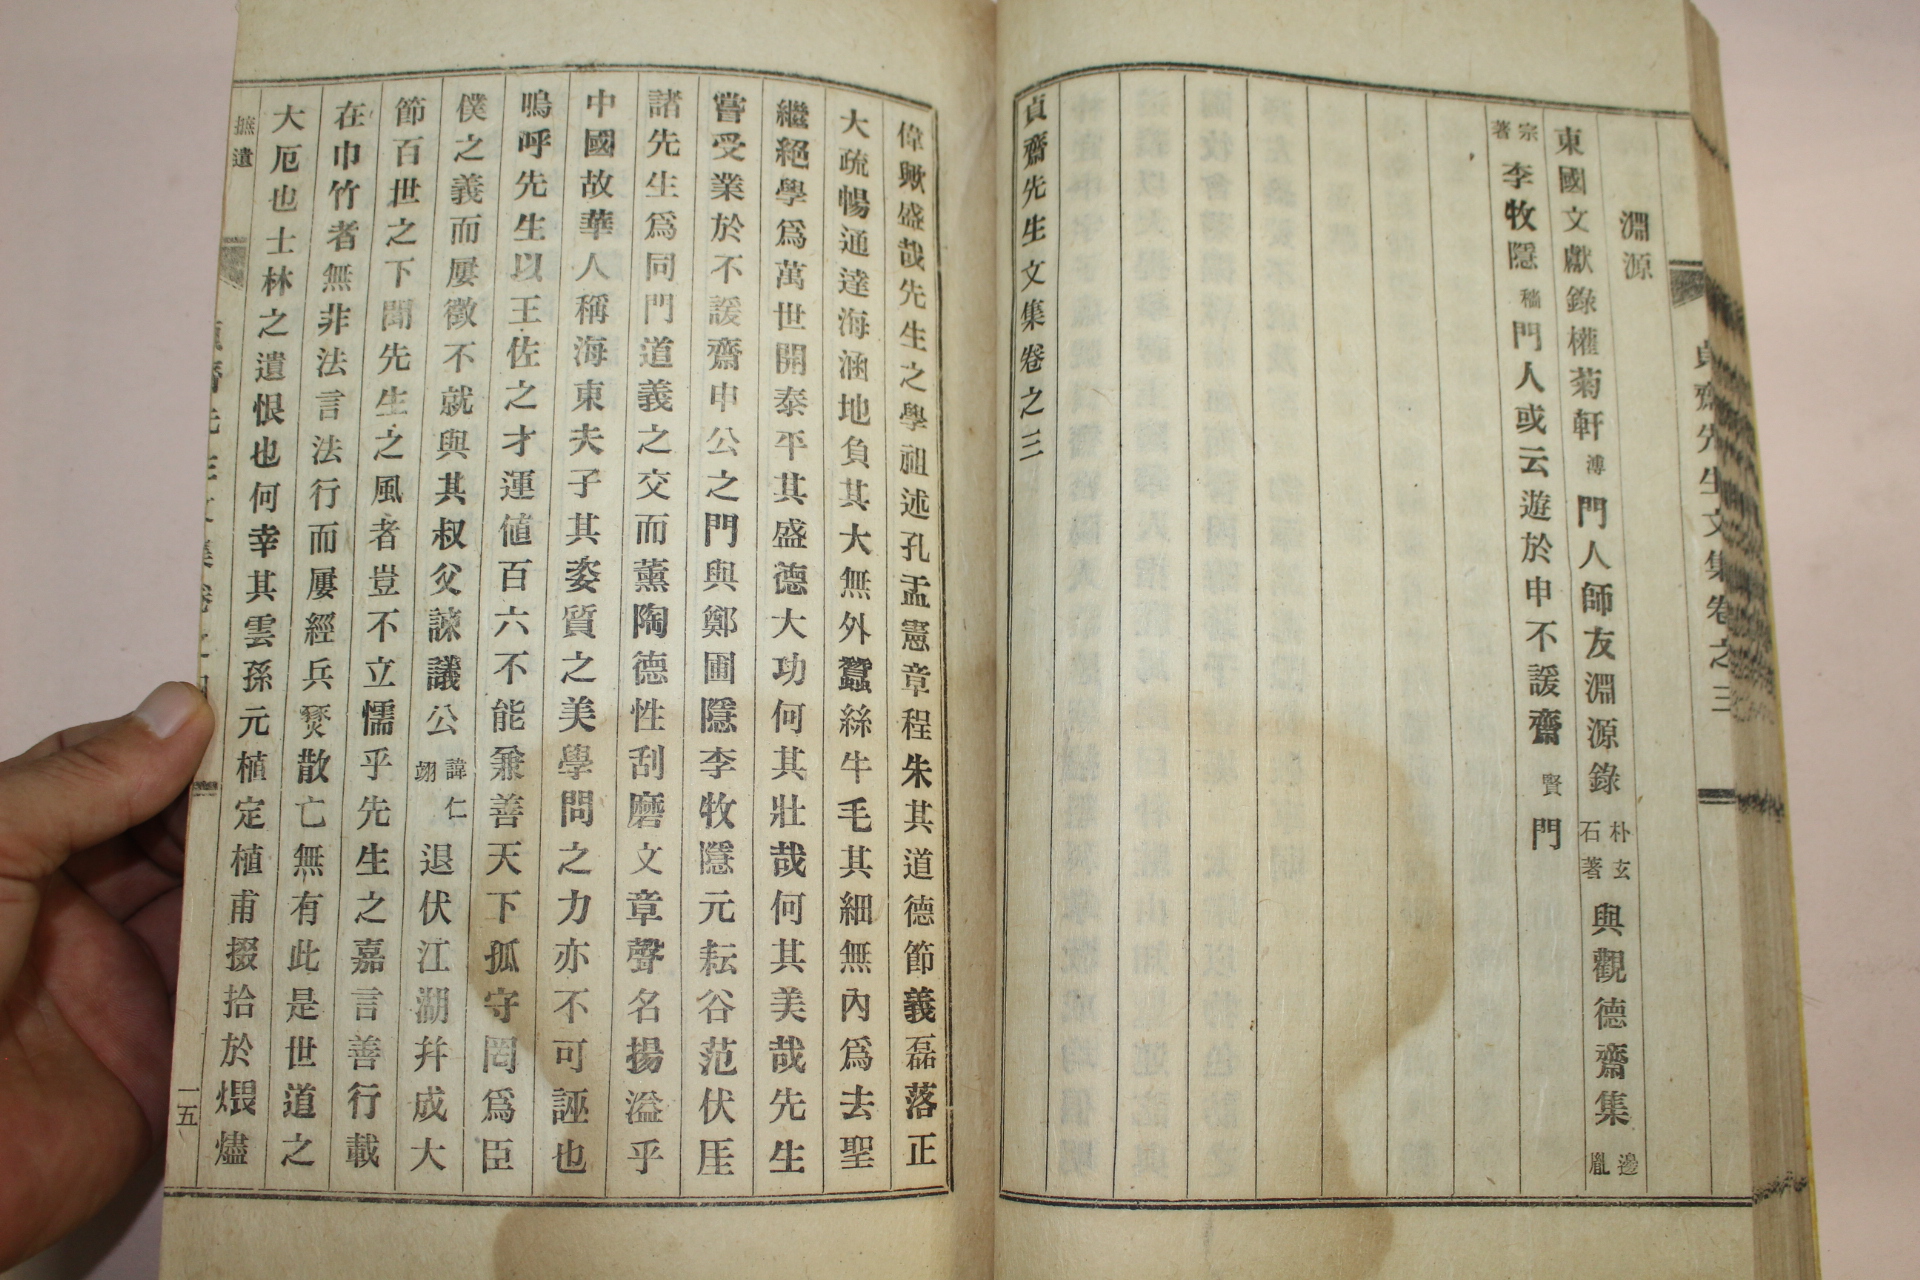 貞齋先生文集卷之三
淵源
東國文獻錄權菊軒溥門人師友淵源錄朴玄石著與觀德齋集邊胤
宗著李牧隱穡門人或云遊於申不諼齋賢門
貞齋先生文集卷之三
偉歟盛哉先生之學祖述孔孟憲章程朱其道德節義磊落正
大疏暢通達海涵地負其大無外蠶絲牛毛其細無內爲去聖
繼絕學爲萬世開泰平其盛德大功何其壯哉何其美哉先生
嘗受業於不諼齋申公之門與鄭圃隱李牧隱元耘谷范伏厓
諸先生爲同門道義之交而薰陶德性刮磨文章聲名揚溢乎
中國故華人稱海東夫子其姿質之美學問之力亦不可誣也
嗚呼先生以王佐之才運値百六不能兼善天下孤守罔爲臣
僕之義而屢徵不就與其叔父諫議公諱仁翊退伏江湖幷成大
節百世之下聞先生之風者豈不立懦乎先生之嘉言善行載
在巾竹者無非法言法行而屢經兵燹散亡無有此是世道之
大厄也士林之遺恨也何幸其雲孫元植定植甫掇拾於煨燼
摭遺
貞齋先生文集卷之四
一五